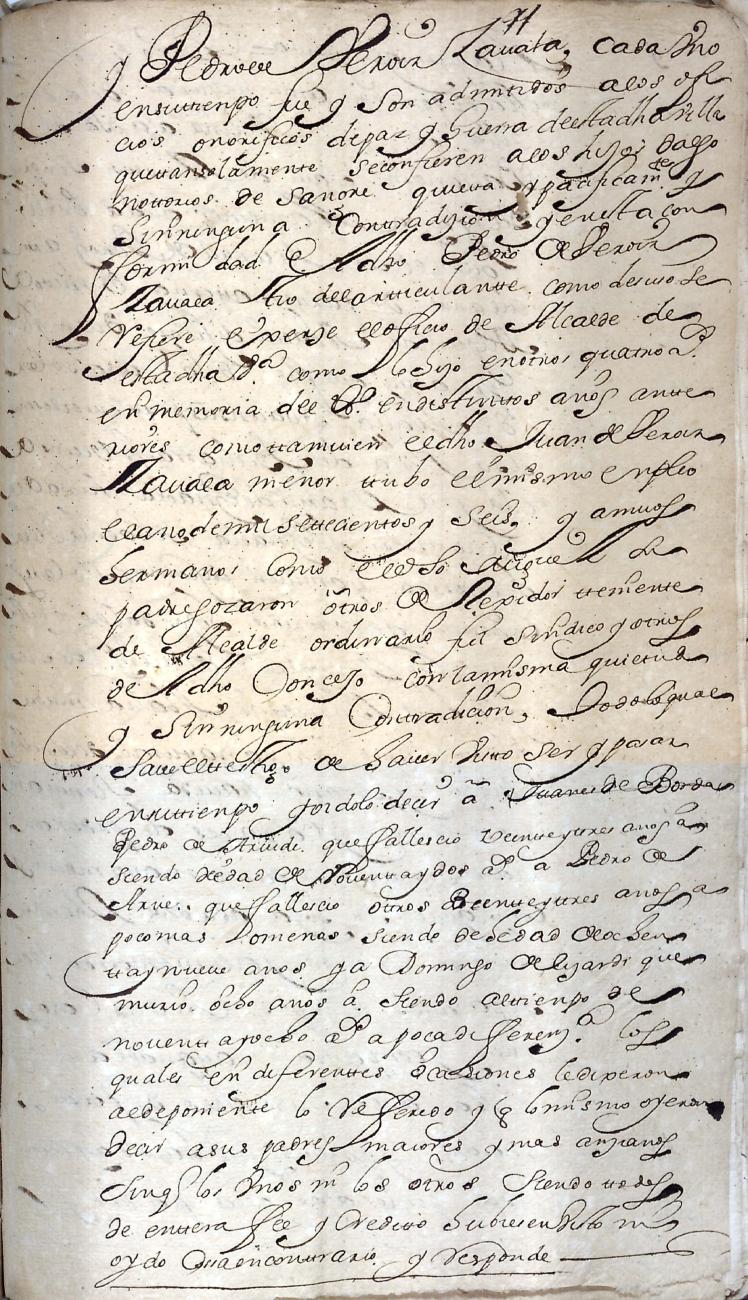 y Pedro de Veroiz Zavala, cada uno
en su tienpo fue y son admitidos a los ofi
cios onorificos de paz y Guerra de esta dha villa
que tan solamente se confieren a los hijos dalgo
nottorios de Sangre quieta y pacificamte y
Sin ninguna Contradizion y en esta con
formidad el dho Pedro de Veroiz
Zavala tio del articulante como de suso se
refiere exerze el ofizio de Alcalde de
esta dha va como lo hizo en otros quatro as
en memoria del to en distintos años ante
riores como ttamvien el dho Juan de Veroiz
Zavala menor ttubo el mismo enpleo
el año de mil settecientos y seis, y amvos
hermanos como el dho su
padre gozaron otros de Rexidor ttheniente
de Alcalde ordinario fiel sindico y otros
de dho Concejo con la misma quietud
y Sin ninguna Contradicion, Todo lo qual
save el ttestigo de haver visto ser y pasar
en su tienpo y oidolo decir a Juanes de Borda
Pedro de que fallescio veinte y tres años a
siendo de edad de noventa y dos as a Pedro de
que fallescio otros veinte y tres años a
poco mas o menos siendo de hedad de ochen
tta y nueve años y a Domingo de Lizardi que
murio ocho años a siendo al tienpo de
noventa y ocho as a poca diferenza los
quales en diferentes ocasiones le dixeron
al deponiente lo referido y q lo mismo oyeron
decir a sus padres maiores y mas anzianos
Sin q los unos ni los otros siendo ttodos
de entera fee y Credito hubiesen visto ni
oydo cosa en contrario y responde